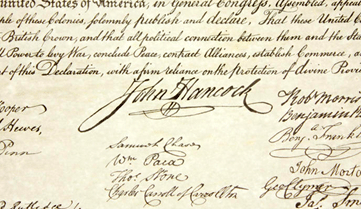 united States of America, in General Congress, Assembled, appeal
ple of these Colonies, solemnly publish and declare, That these United
British Crown, and that all political connection between them and the Sta
ll Power to levy War, conclude Peace, contract Alliances, establish Commerce, a
t of this Declaration, with a firm reliance on the protection of divine Provi
John Hancock
ooper
Hewes,
Penn
Samuel Chase
Wm Paca
Thos. Stone
Charles Carroll of Carrollton
Robt Morri
Benjamin
Benja Frank
John Mort
Geo Clymer
Jas. Sm